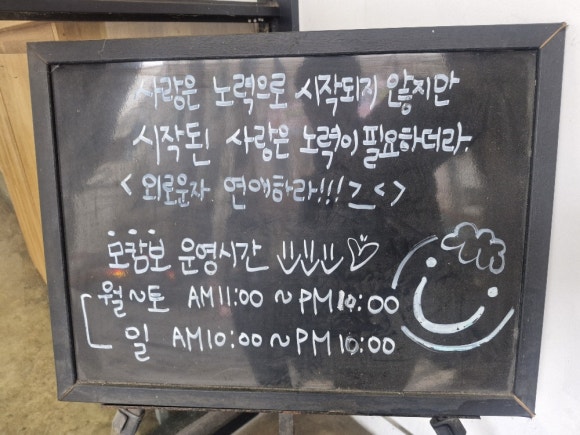 사랑은 노력으로 시작되지 않지만
시작된 사랑은 노력이 필요하더라.
< 외로운자 연애하라!!! >_< >
모캄보 운영시간 ↓↓↓♡
월~토 AM11:00 ~ PM10:00
일 AM10:00 ~ PM10:00